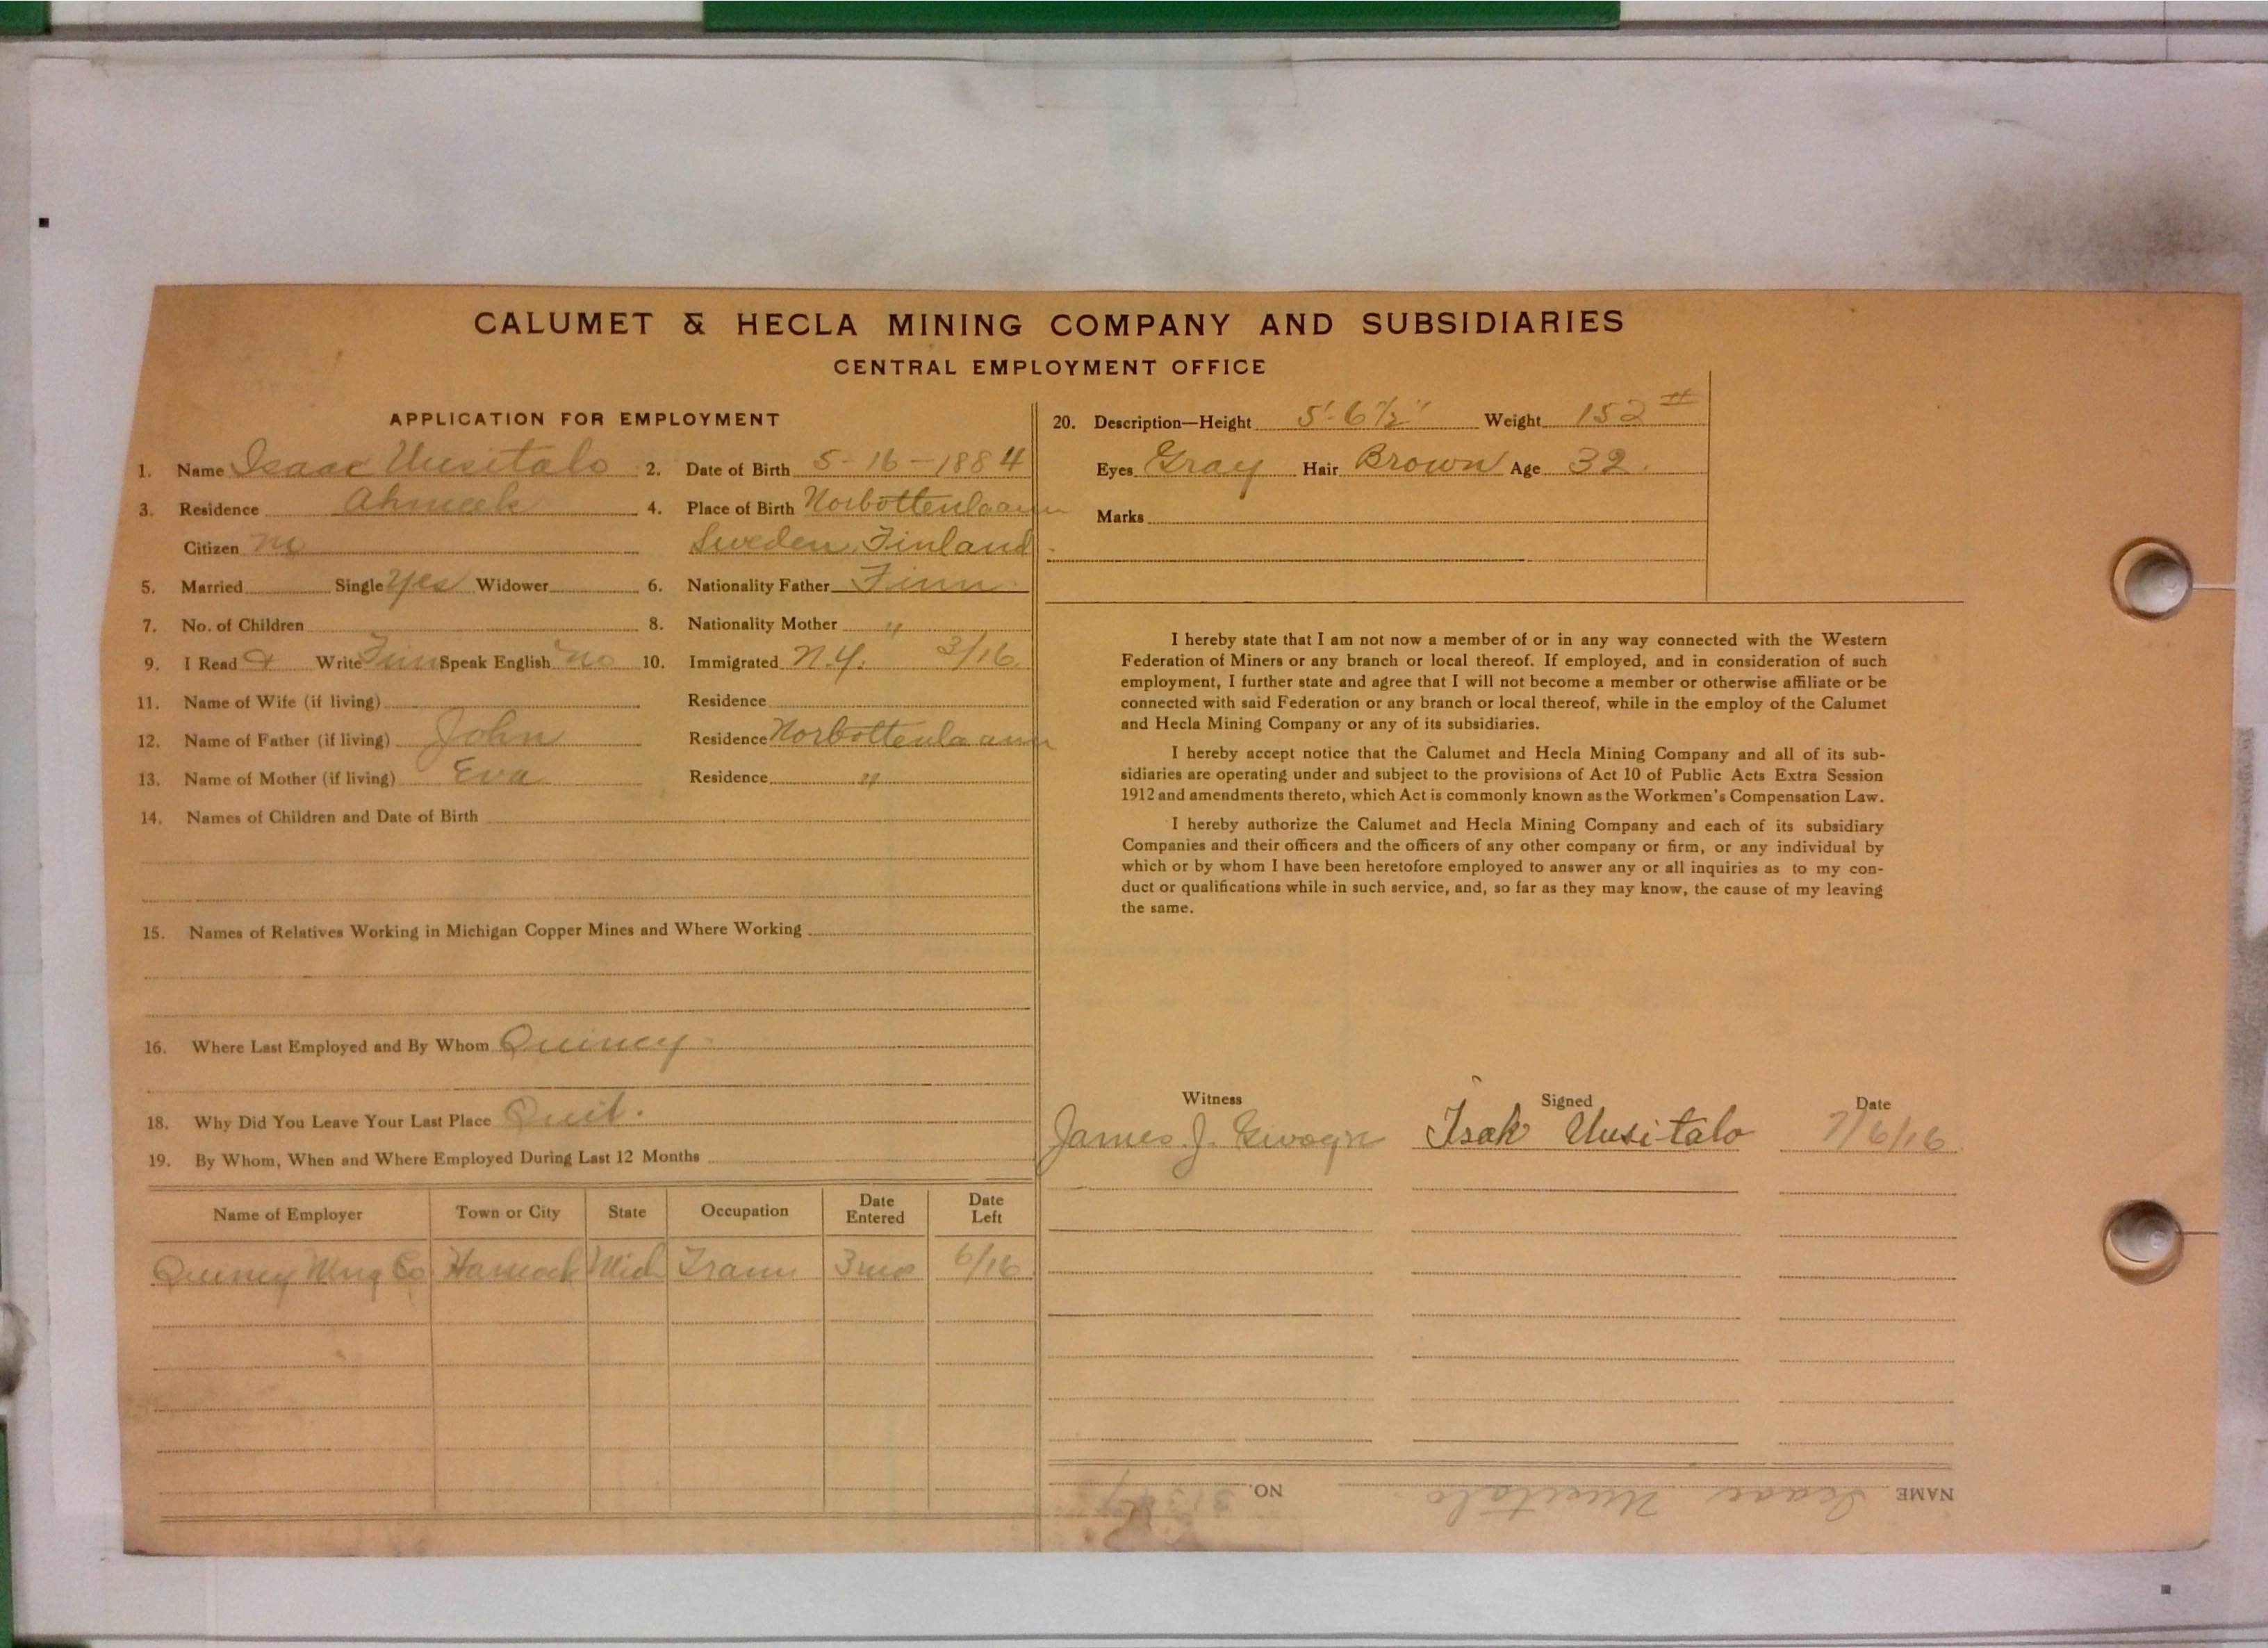 CALUMET & HECLA MINING COMPANY AND SUBSIDIARIES
CENTRAL EMPLOYMENT OFFICE
APPLICATION FOR EMPLOYMENT
1. Name Isaac Uusitalo 2. Date of Birth 5-16-1884
3. Residence Ahmeek 4. Place of Birth Norbottenlaann
Citizen no Sweden, Finland
5. Married Single yes Widower 6. Nationality Father Finn
7. No. of Children 8. Nationality Mother "
9. I Read & Write Finn Speak English no 10. Immigrated N.Y. 3/16
11. Name of Wife (if living) Residence
12. Name of Father (if living) John Residence Norbottenlaann
13. Name of Mother (if living) Eva Residence "
14. Names of Children and Date of Birth
15. Names of Relatives Working in Michigan Copper Mines and Where Working
16. Where Last Employed and By Whom Quincy
18. Why Did You Leave Your Last Place Quit.
19. By Whom, When and Where Employed During Last 12 Months
Name of Employer Town or City State Occupation Date Entered Date Left
Quincy Mng Co Hancock Mich Tram 3mo 6/16
20. Description—Height 5'-6½" Weight 152 #
Eyes Gray Hair Brown Age 32.
Marks
I hereby state that I am not now a member of or in any way connected with the Western
Federation of Miners or any branch or local thereof. If employed, and in consideration of such
employment, I further state and agree that I will not become a member or otherwise affiliate or be
connected with said Federation or any branch or local thereof, while in the employ of the Calumet
and Hecla Mining Company or any of its subsidiaries.
I hereby accept notice that the Calumet and Hecla Mining Company and all of its sub-
sidiaries are operating under and subject to the provisions of Act 10 of Public Acts Extra Session
1912 and amendments thereto, which Act is commonly known as the Workmen's Compensation Law.
I hereby authorize the Calumet and Hecla Mining Company and each of its subsidiary
Companies and their officers and the officers of any other company or firm, or any individual by
which or by whom I have been heretofore employed to answer any or all inquiries as to my con-
duct or qualifications while in such service, and, so far as they may know, the cause of my leaving
the same.
Witness Signed Date
James J. Isak Uusitalo 7/6/16
NAME Isaac Uusitalo NO.